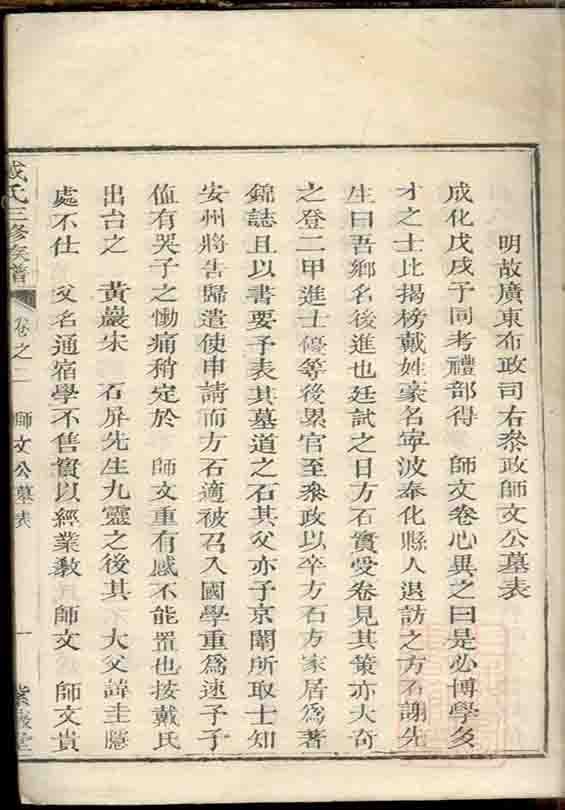 明故廣東布政司右叅政師文公墓表
成化戊戌予同考禮部得 師文卷心異之曰是必博學多
才之士比揭榜戴姓豪名寧波奉化縣人退訪之方石謝先
生曰吾鄉名後進也廷試之日方石實受卷見其策亦大奇
之登二甲進士優等後累官至叅政以卒方石方家居為著
錦誌且以書要予表其墓道之石其父亦予京闈所取士知
安州將告歸遣使申請而方石適被召入國學重為速予予
值有哭子之慟痛稍定於 師文重有感不能置也按戴氏
出台之 黃巖宋 石屏先生九靈之後其 大父諱圭隱
處不仕 父名通宿學不售貲以經業教 師文 師文貴
氏三修族譜 卷之二 師文公墓表 一 紫巖堂